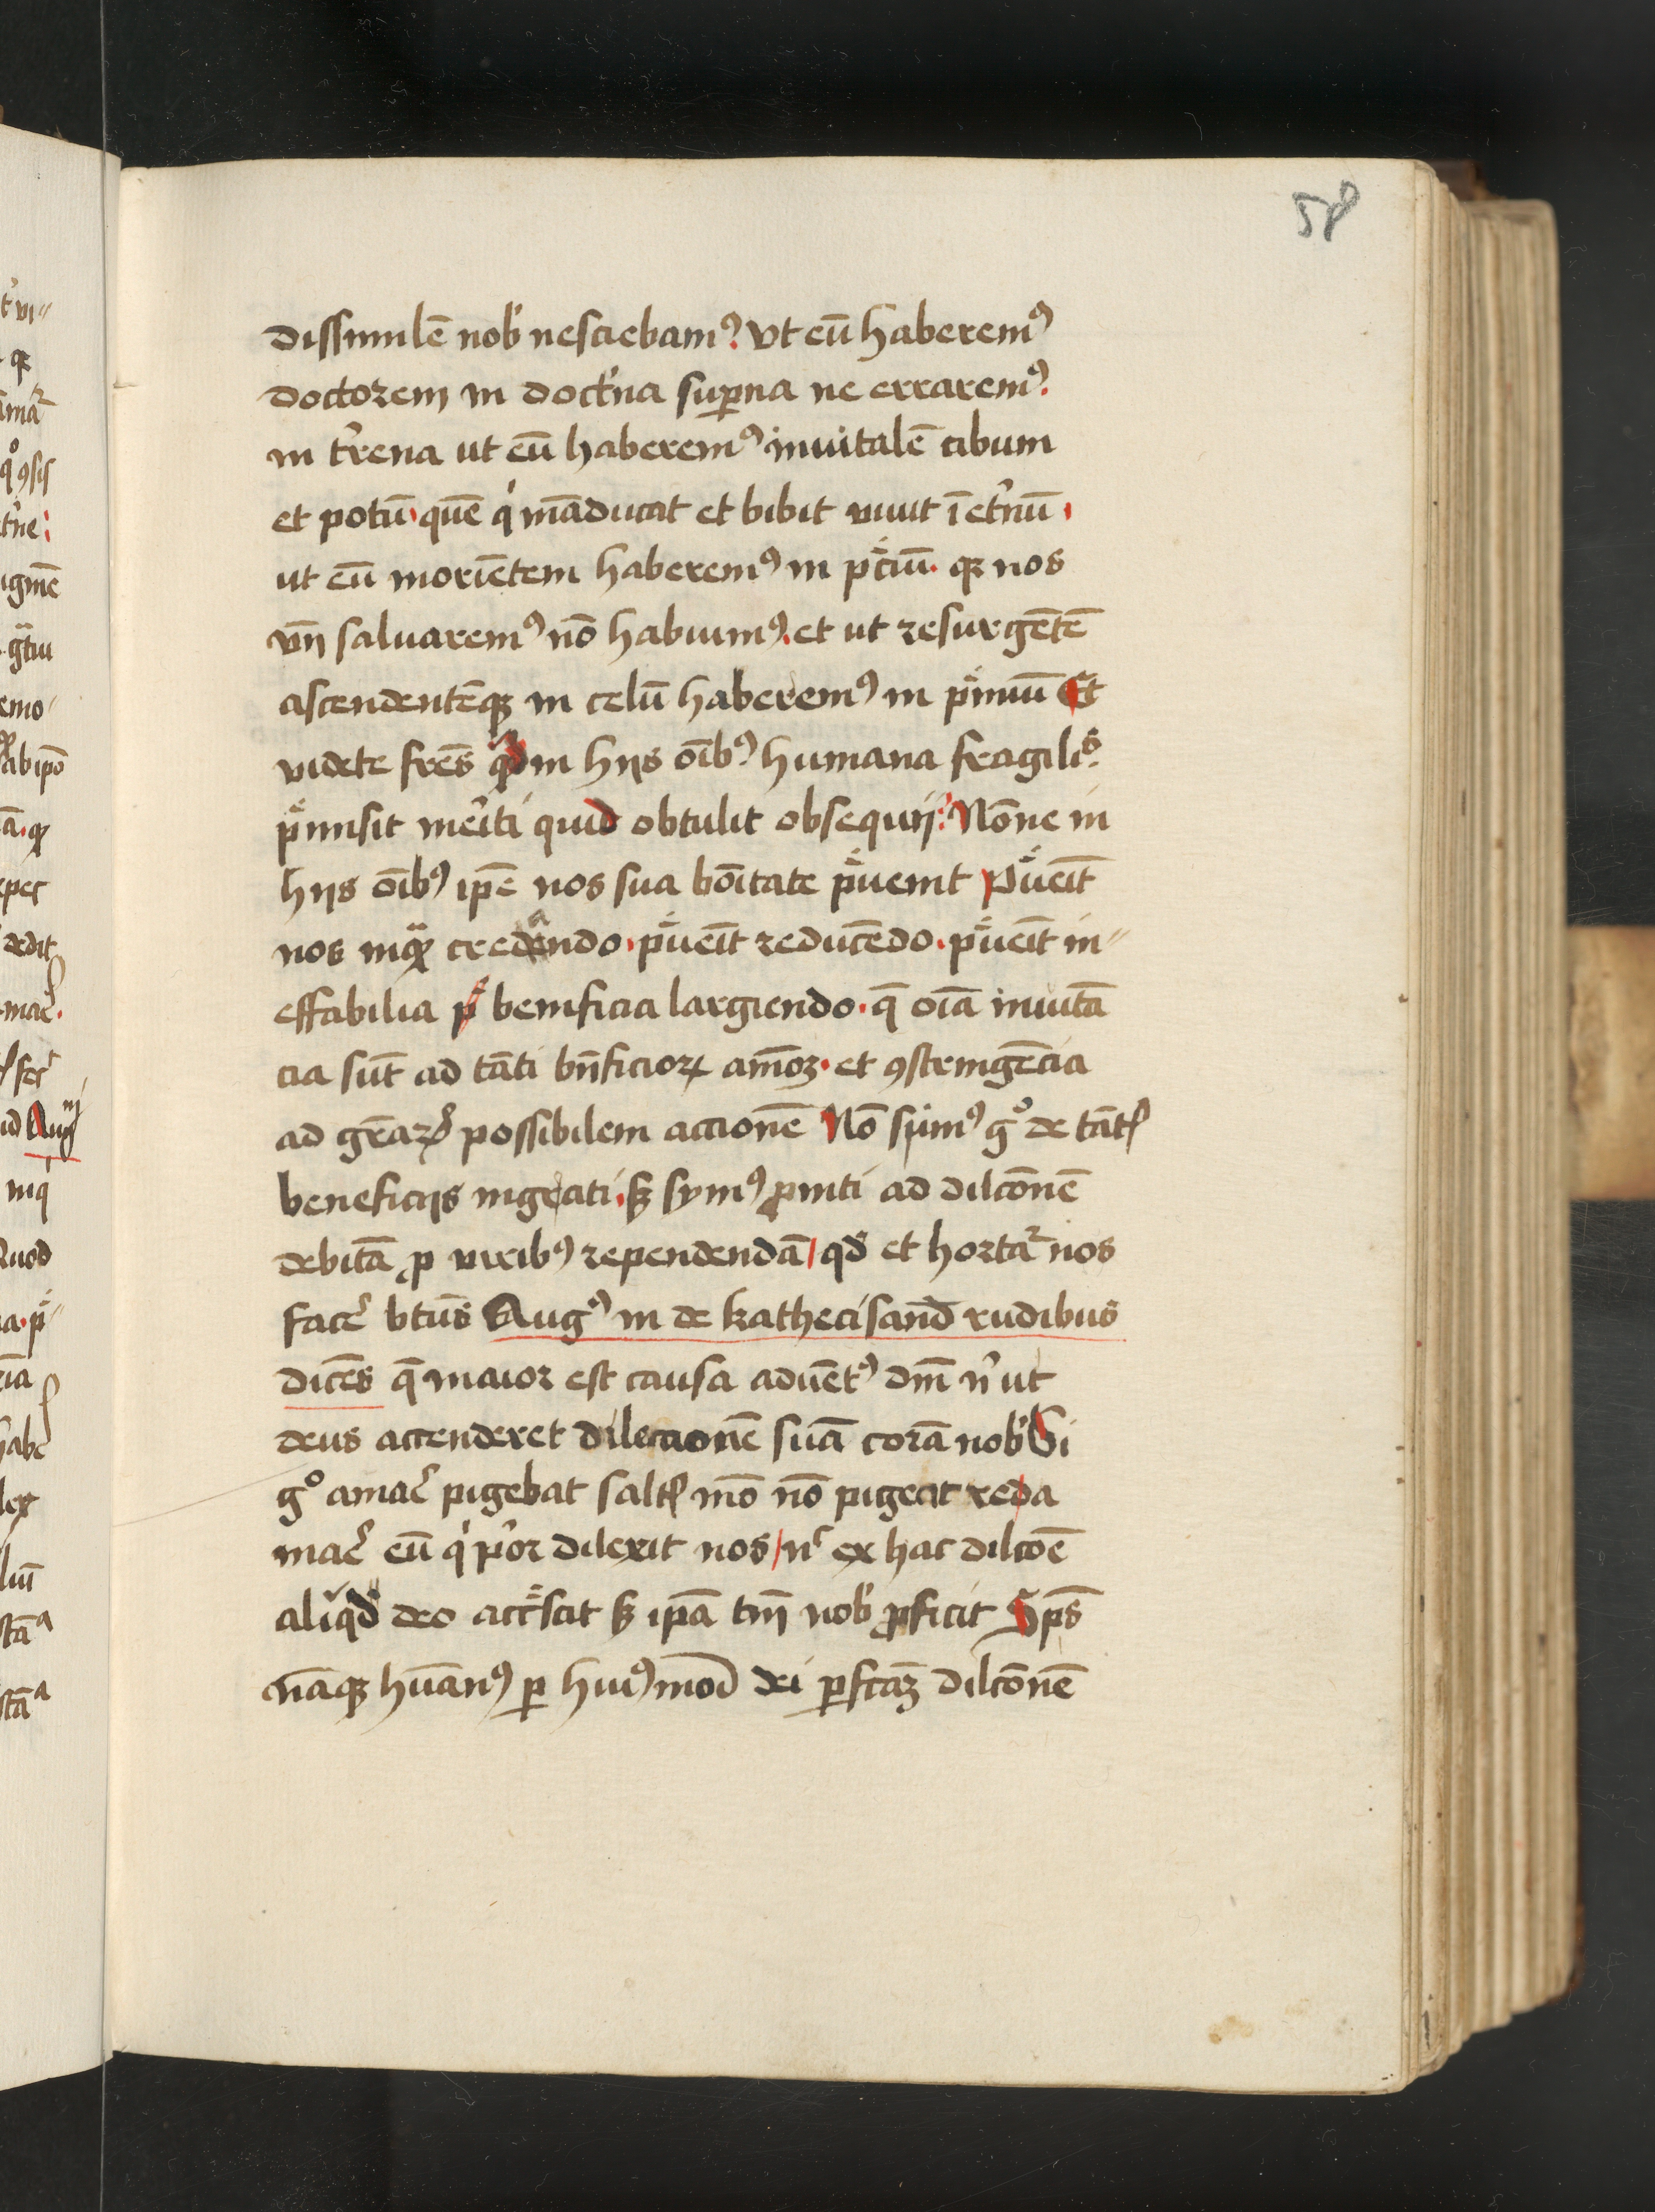 58
dissimilē nob̾ nesciebamꝰ. vt eū haberemꝰ
doctorem in doct̾na sup̱na ne erraremꝰ.
in t̾rena ut eū haberemꝰ inuitalē cibum
et potū. quē qͥ māducat et bibit viuit ī et̾nū.
ut eū moriētem haberemꝰ in p̾ciū. qꝫ nos
vn̄ saluaremꝰ nō habuimꝰ. et ut resurgētē
ascendentēqꝫ in celū haberemꝰ in p̾miū Et
videte fr̄es qͥd in hijs oībꝰ humana fragilis
p̾misit meriti quid obtulit obsequij: Nōne in
hijs oībꝰ ip̄e nos sua bōitate p̾uenit P̾ueīt
nos inqͣꝫ credando. p̾ueīt reducēdo. p̾ueīt in-
effabilia beneficia largiendo. q̄ oīa inuitā
cia sūt ad tāti bn̄ficioꝝ amōꝫ. et ꝯstringēcia
ad gr̄aꝝ possibilem accionē Nō simꝰ gͦ de tātꝭ
beneficijs ingrati. sꝫ symꝰ ꝓmti ad dilcōnē
debitā ꝓ viribꝰ rependendā/ qd̾ et hortat᷑ nos
fac̾e btūs Augꝰ in de kathecisand̄ rudibus
dicēs q̄ maior est causa aduētꝰ dm̄ n̾ ut
deus accenderet dileccionē suā corā nob̾ Si
gͦ amac̾ pigebat saltꝭ mō nō pigeat reda
mac̾ eū qͥ p̾or dilexit nos/ n̾ ex hac dilcōē
aliqͥd deo acc̾scit sꝫ ip̄a tm̄ nob̾ ꝓficit Sp̄s
nāqꝫ hūanꝰ ꝑ huiꝰmod̄ dei ꝑfcāꝫ dilcōnē